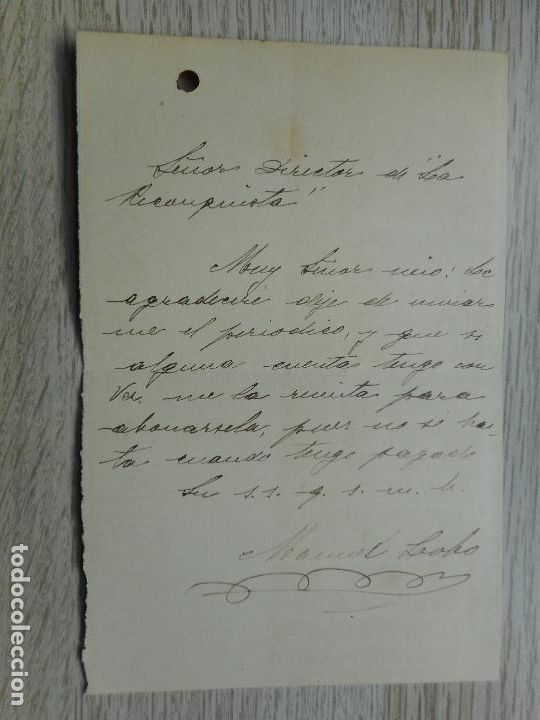 Señor Director de "La
Reconquista"
Muy Señor mio: Le
agradeceré deje de enviar-
me el periodico, y que si
alguna cuenta tengo con
Vd. me la remita para
abonarsela, pues no sé has-
ta cuando tengo pagado
Su s. s. q. s. m. b.
Manuel Lobo
todocoleccion
todocoleccion.net